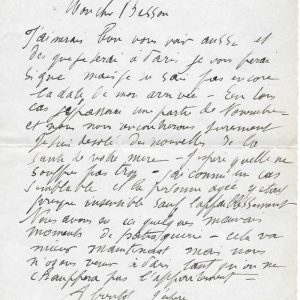 Mon cher Besson
J'aimerais bien vous voir aussi et
dès que je serai à Paris je vous ferai
signe mais je ne sais pas encore
la date de mon arrivée — En tous
cas je passerai une partie de Novembre
et nous nous rencontrerons sûrement
Je suis désolé des nouvelles de la
santé de votre mère — J'espère qu'elle ne
souffre pas trop — J'ai connu un cas
semblable et la personne âgée y était
presque insensible sauf l'
Nous avons eu ici quelques mauvais
moments de — cela va
mieux maintenant mais nous
n'osons venir à Paris tant qu'on ne
chauffera pas l'appartement —
A bientôt j'espère